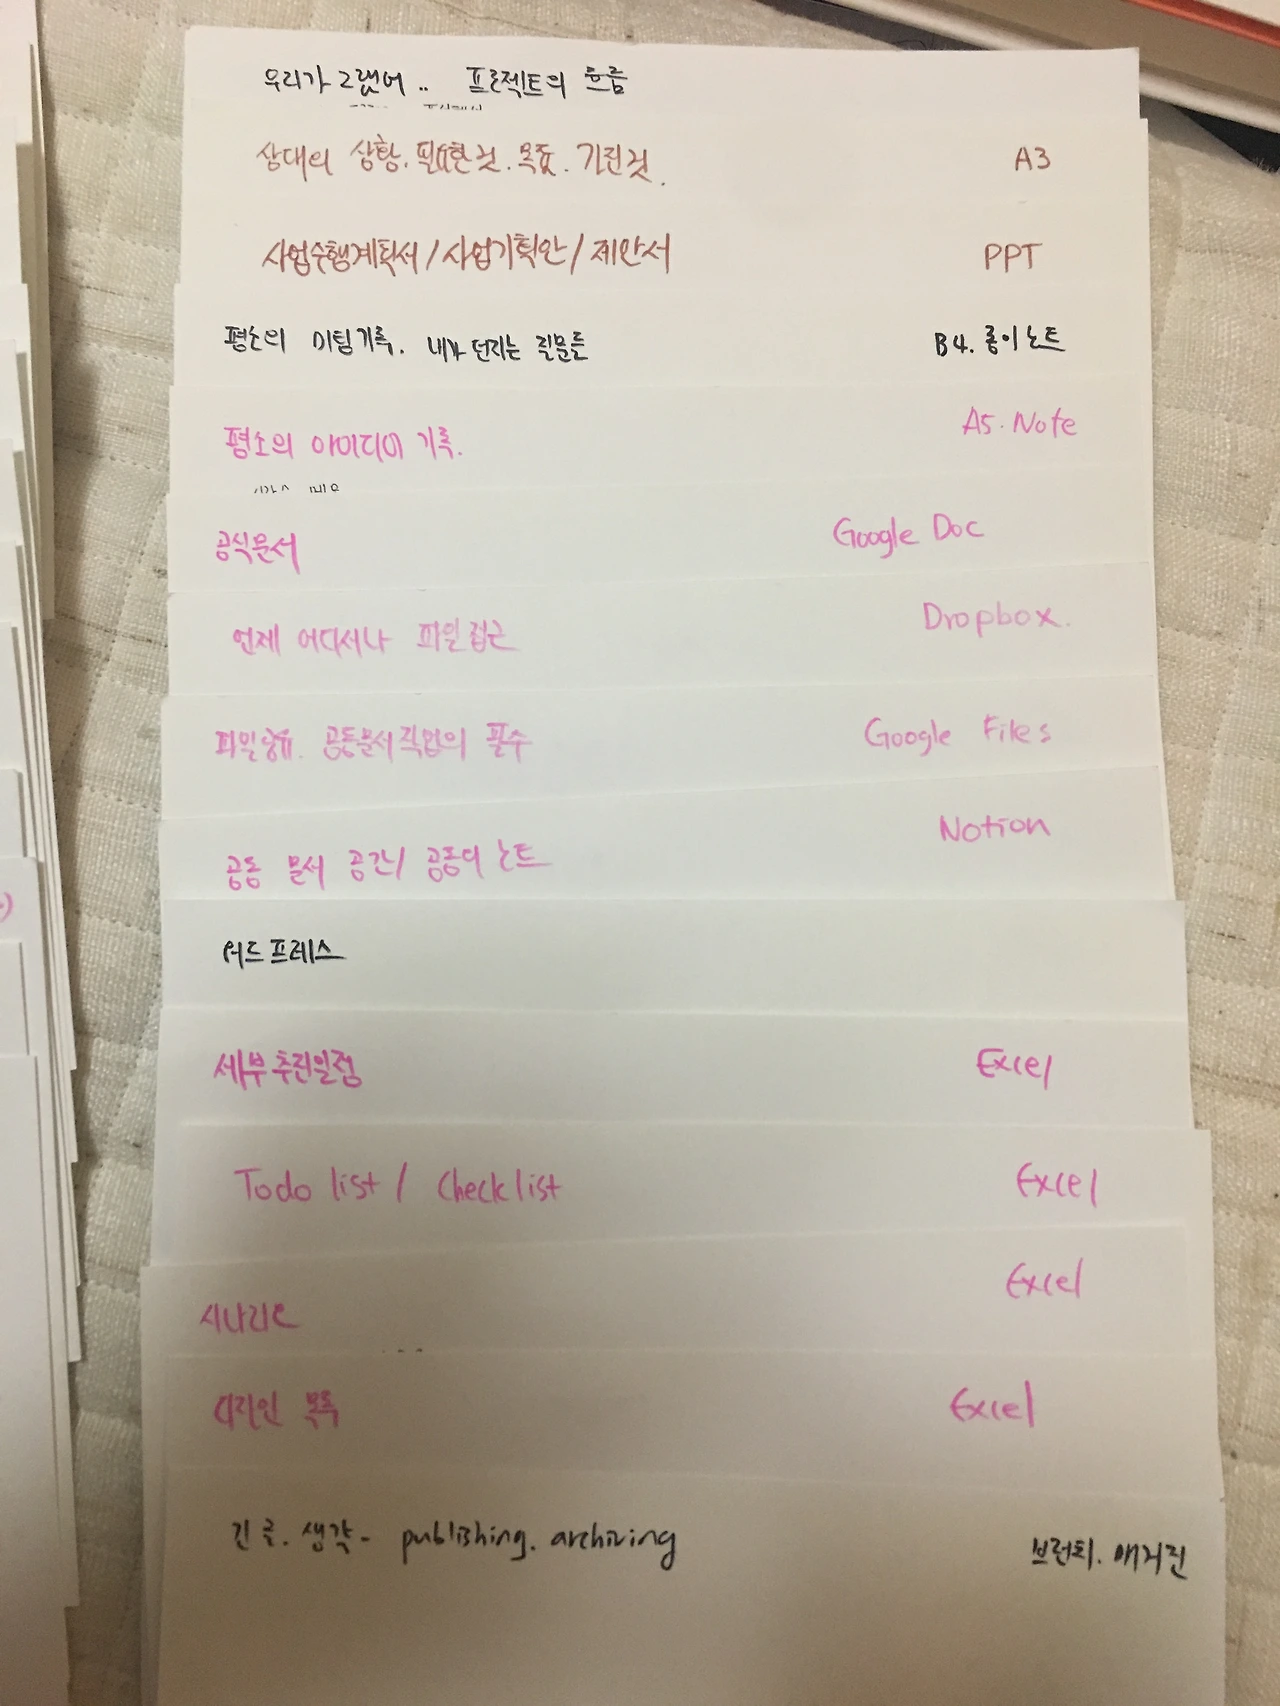 우리가 그랬어.. 프로젝트의 흐름
상대의 상황. 필요한 것. 목표. 가진것. A3
사업수행계획서 / 사업기획안 / 제안서 PPT
평소의 미팅기록. 내가 던지는 질문들 B4. 종이노트
평소의 아이디어 기록. A5. Note
공식문서 Google Doc
언제 어디서나 파일접근 Dropbox.
파일공유. 공동문서작업의 필수 Google Files
공동 문서 공간 / 공동의 노트 Notion
워드프레스
세부추진일정 Excel
Todo list / Checklist Excel
시나리오 Excel
디자인 목록 Excel
긴 글. 생각- publishing. archiving 브런치. 매거진